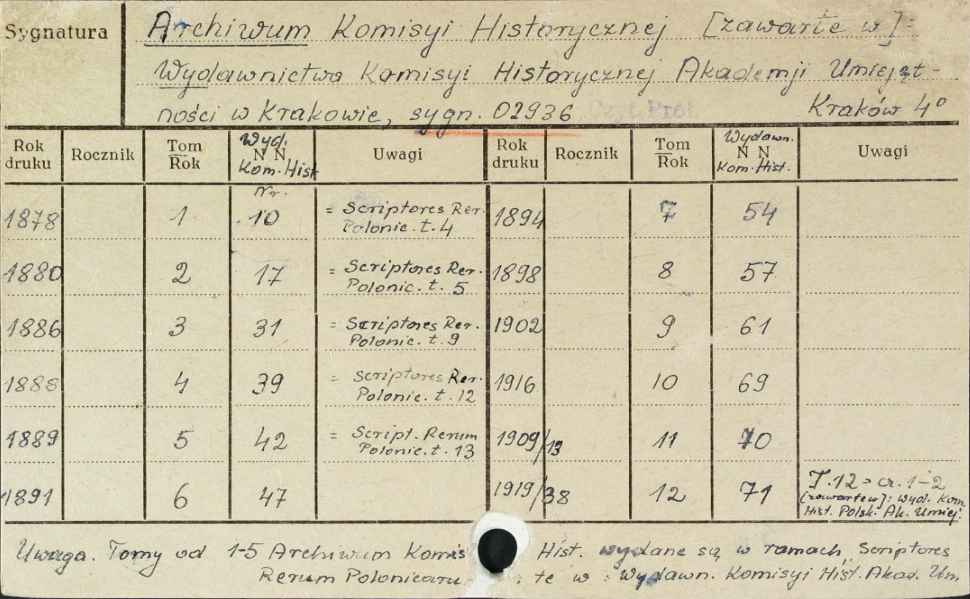 Sygnatura
Archiwum Komisyi Historycznej [zawarte w]:
Wydawnictwa Komisyi Historycznej Akademji Umiejęt-
ności w Krakowie, sygn. 02936 Kraków 4°
Rok druku Rocznik Tom Rok Wyd. N N Kom. Hist Uwagi Rok druku Rocznik Tom Rok Wydawn. N N Kom. Hist. Uwagi
Nr.
1878 1 10 = Scriptores Rer. Polonic. t. 4 1894 7 54
1880 2 17 = Scriptores Rer. Polonic. t. 5 1898 8 57
1886 3 31 = Scriptores Rer. Polonic. t. 9 1902 9 61
1888 4 39 = Scriptores Rer. Polonic. t. 12 1916 10 69
1889 5 42 = Script. Rerum Polonic. t. 13 1909/13 11 70
1891 6 47 1919/38 12 71 T. 12 = cz. 1-2 [zawarte w]: Wyd. Kom. Hist. Polsk. Ak. Umiej.
Uwaga. Tomy od 1-5 Archiwum Komis Hist. wydane są w ramach Scriptores
Rerum Polonicaru te w: Wydawn. Komisyi Hist. Akad. Um.